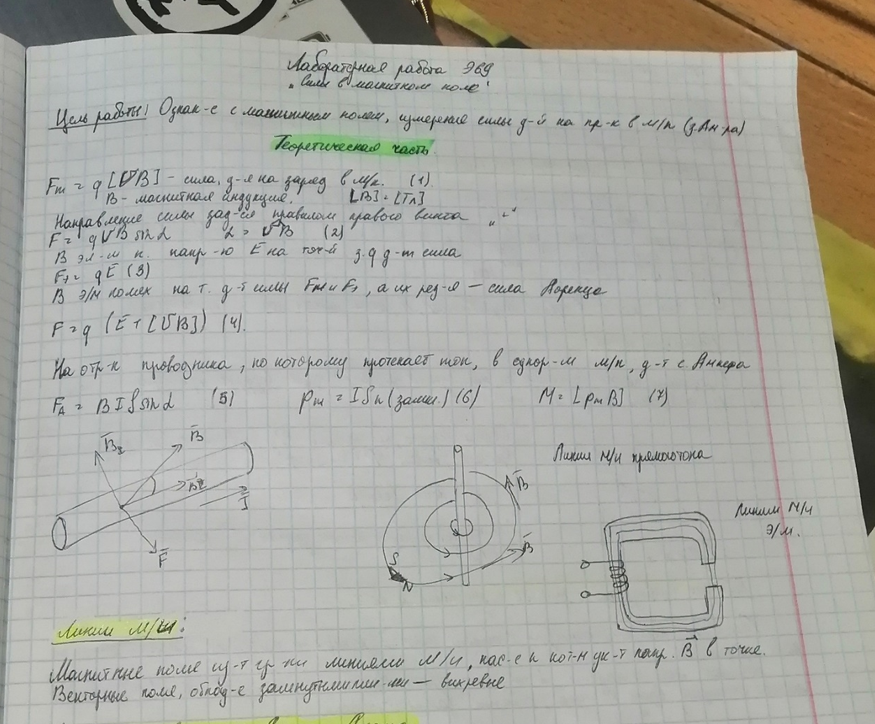 Лабораторная работа Э69
"Силы в магнитном поле"
Цель работы: Ознак-е с магнитным полем, измерение силы д-й на пр-к в м/п (з.Ам-ра)
Теоретическая часть.
Fm = q [ῡB] - сила, д-я на заряд в м/п. (1)
B - магнитная индукция. [B] = [Тл]
Направление силы зад-ся правилом правого винта
F = q υ B sin α (2)
В эл-м п. напр-ю E на точ-й з. q д-т сила
= qE (3)
В э/м полях на т. д-т силы Fm и , а их рез-я — сила Лоренца
F = q (E + [ῡB]) (4).
На отр-к проводника, по которому протекает ток, в однор-м м/п, д-т с. Ампера
FA = BIl sin α (5) pm = ISn (замк.) (6) M = [pm B] (7)
B̄ B̄ Ī F̄
Линии М/И прямого тока
B̄ B̄ S N
Линии М/И
Э/М.
Линии М/И:
Магнитное поле из-т гр-ки линиями М/И, кас-е к кот-м ук-т напр. B⃗ в точке.
Векторные поле, облад-е замкнутыми лин-ми — вихревые